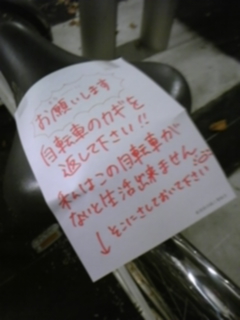 お願いします
自転車のカギを
返して下さい!!
私はこの自転車が
ないと生活出来ません
↓そこにさしておいて下さい